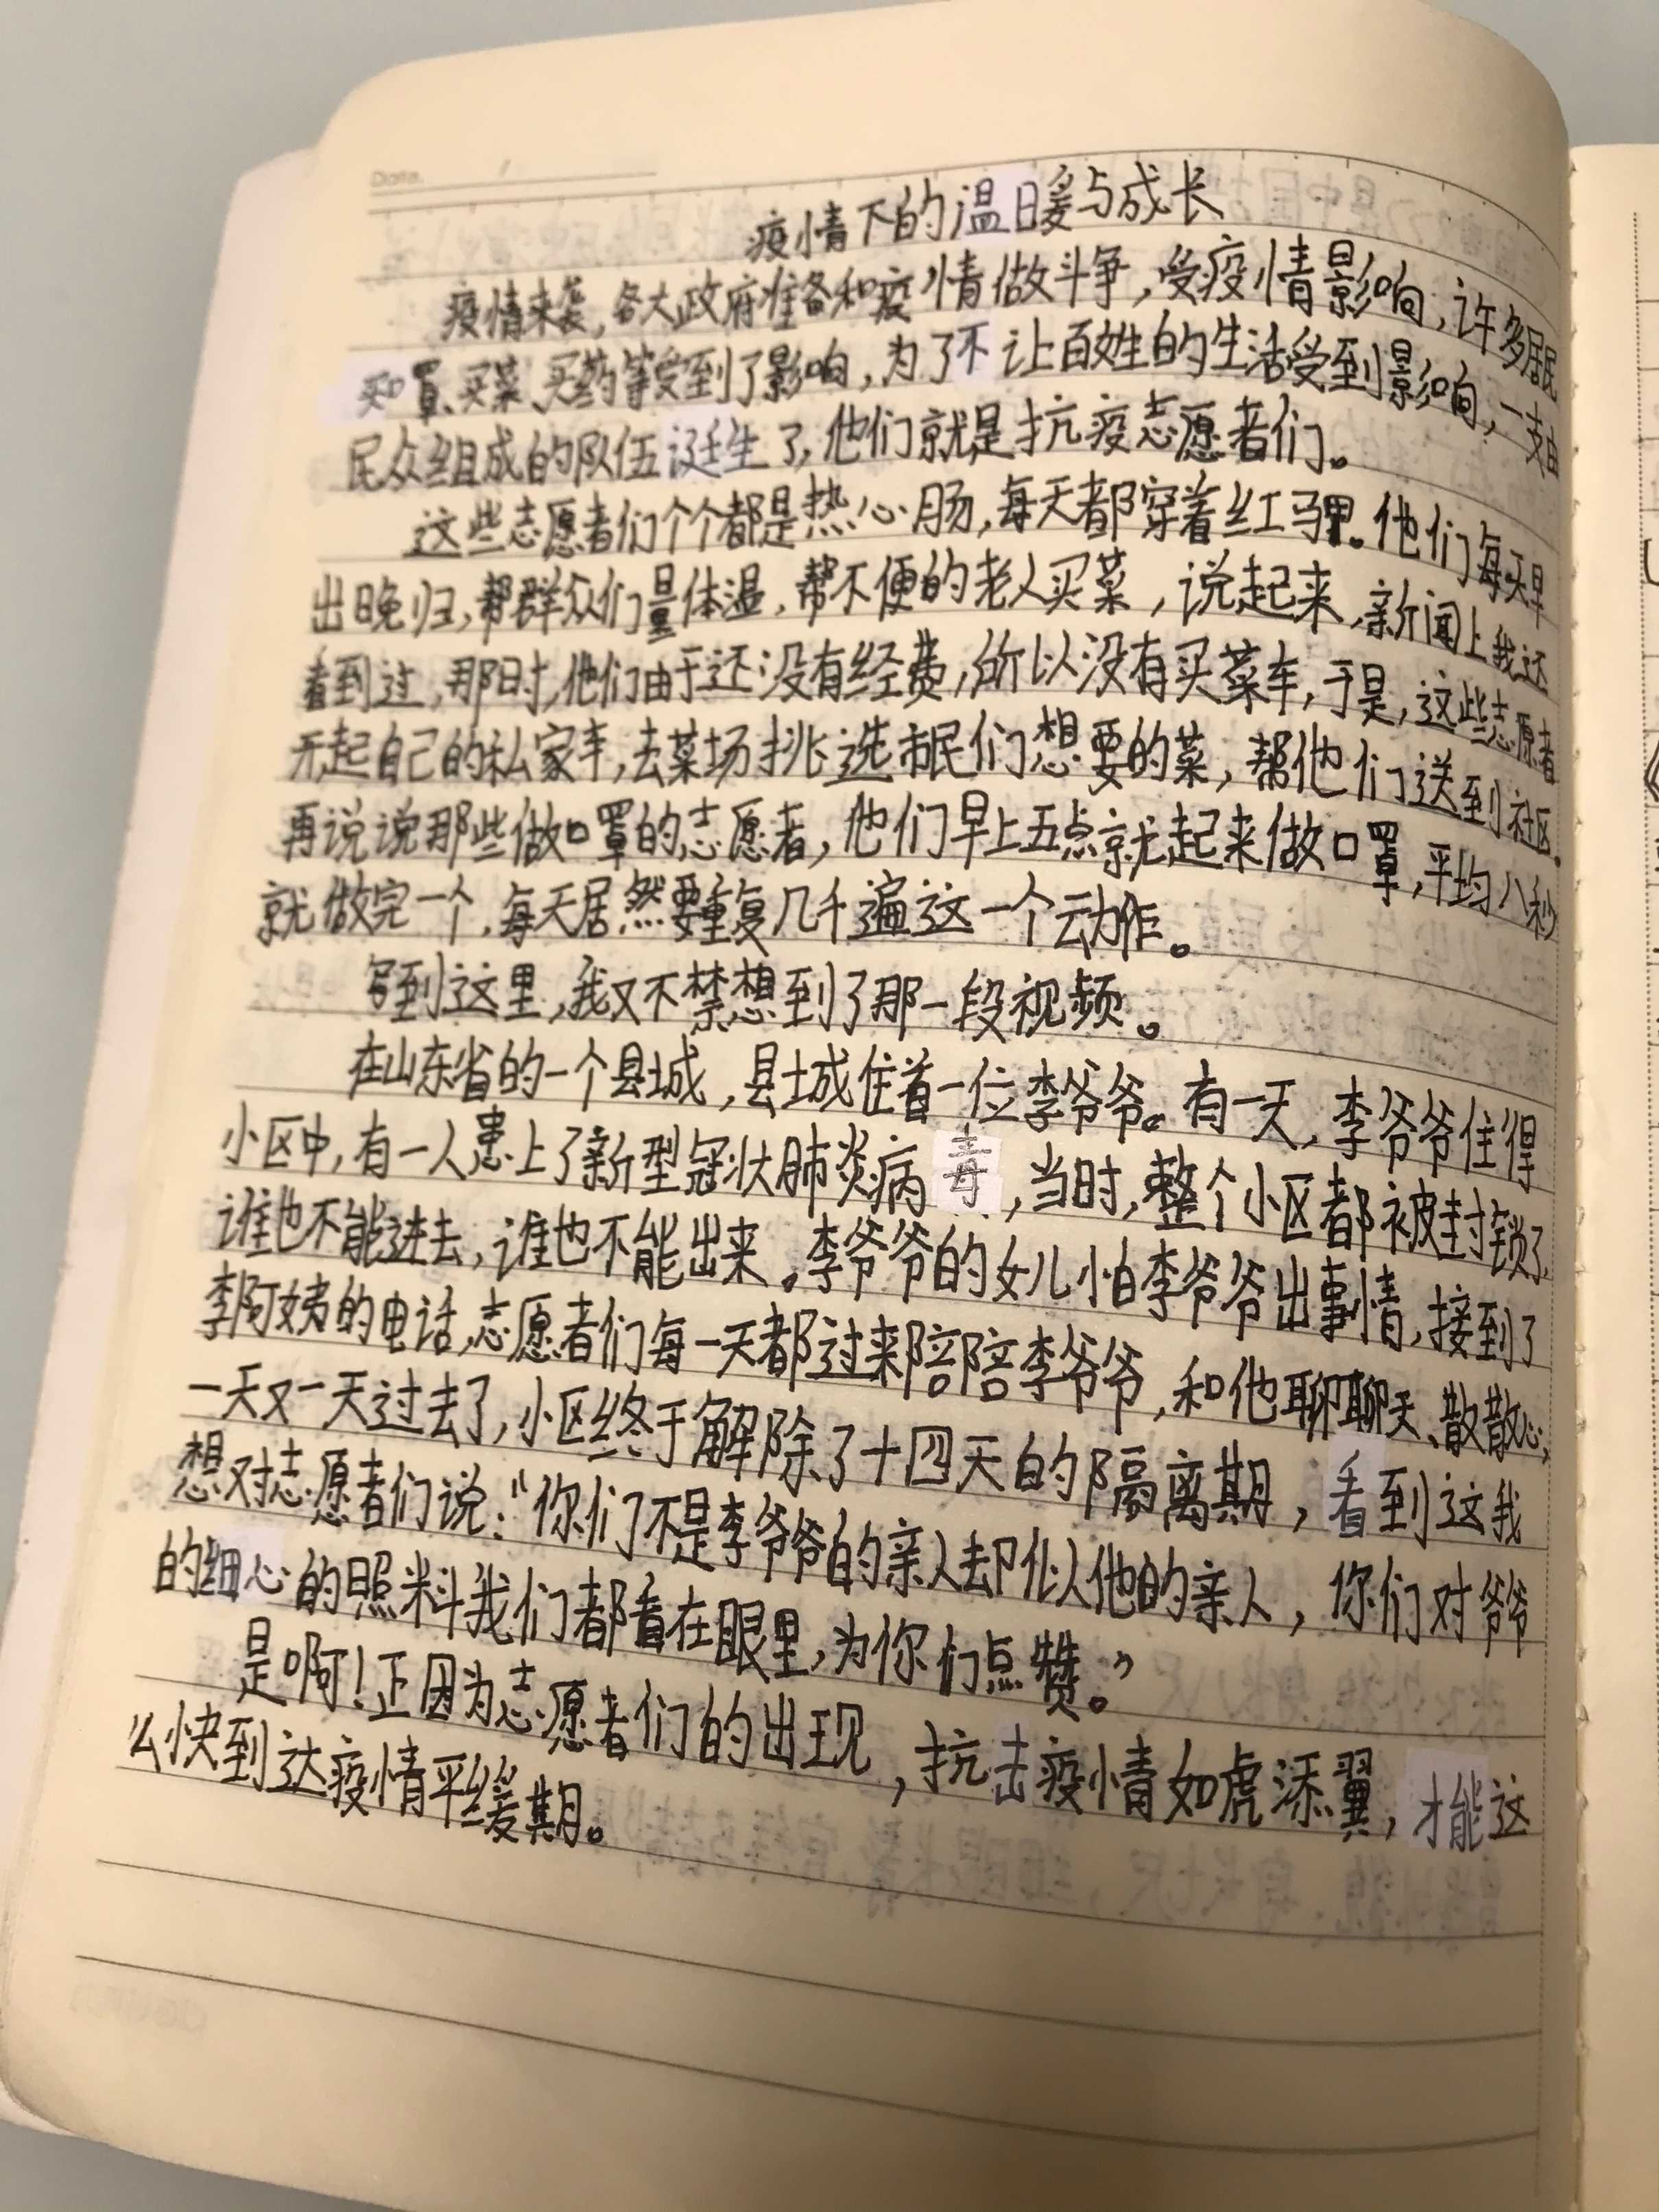 Date.
疫情下的温暖与成长
疫情来袭，各大政府准备和疫情做斗争，受疫情影响，许多居民
买口罩、买菜、买药等受到了影响，为了不让百姓的生活受到影响，一支由
民众组成的队伍诞生了，他们就是抗疫志愿者们。
这些志愿者们个个都是热心肠，每天都穿着红马甲。他们每天早
出晚归，帮群众们量体温，帮不便的老人买菜，说起来，新闻上我还
看到过，那时，他们由于还没有经费，所以没有买菜车，于是，这些志愿者
开起自己的私家车，去菜场挑选市民们想要的菜，帮他们送到社区。
再说说那些做口罩的志愿者，他们早上五点就起来做口罩，平均八秒
就做完一个，每天居然要重复几千遍这一个动作。
写到这里，我又不禁想到了那一段视频。
在山东省的一个县城，县城住着一位李爷爷。有一天，李爷爷住得
小区中，有一人患上了新型冠状肺炎病毒，当时，整个小区都被封锁了，
谁也不能进去，谁也不能出来。李爷爷的女儿怕李爷爷出事情，接到了
李阿姨的电话，志愿者们每一天都过来陪陪李爷爷，和他聊聊天、散散心，
一天又一天过去了，小区终于解除了十四天的隔离期，看到这我
想对志愿者们说：“你们不是李爷爷的亲人却似他的亲人，你们对爷爷
的细心的照料我们都看在眼里，为你们点赞。”
是啊！正因为志愿者们的出现，抗击疫情如虎添翼，才能这
么快到达疫情平缓期。